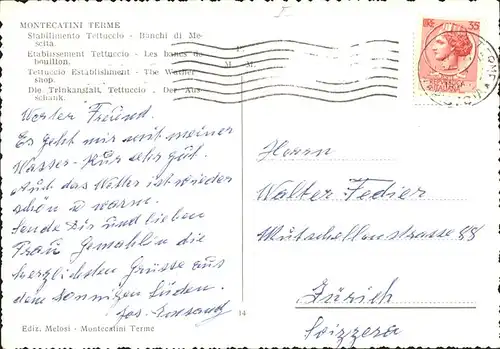 MONTECATINI TERME
Stabilimento Tettuccio - Banchi di Me-
scita.
Etablissement Tettuccio - Les bancs de
bouillon.
Tettuccio Establishment - The Water-
shop.
Die Trinkanstalt, Tettuccio - Der Aus-
schank.
35
Werter Freund.
Es geht mir mit meiner
Wasser-Kur sehr gut.
Auch das Wetter ist wieder
schön & warm.
Sende Dir und lieben
Frau Gemahlin die
herzlichsten Grüsse aus
dem sonnigen Süden.
Jos.
Herrn
Walter Fedier
Mutschellenstrasse 88
Zürich
Svizzera
14
Ediz. Melosi - Montecatini Terme